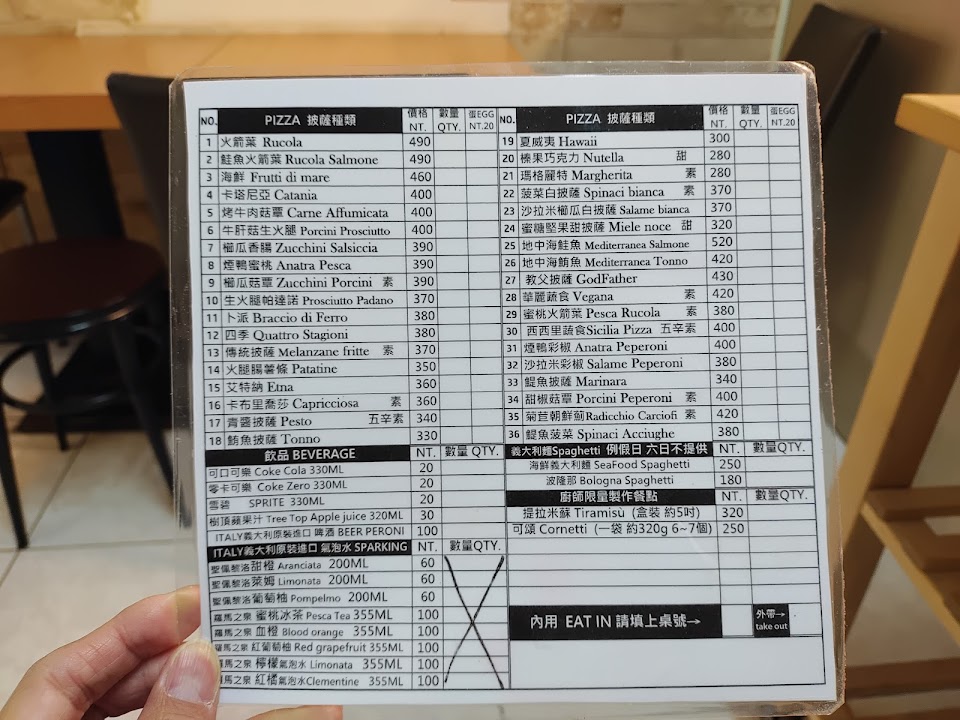 NO. PIZZA 披薩種類 價格 NT. 數量 QTY. 蛋EGG NT.20
1 火箭葉 Rucola 490
2 鮭魚火箭葉 Rucola Salmone 490
3 海鮮 Frutti di mare 460
4 卡塔尼亞 Catania 400
5 烤牛肉菇蕈 Carne Affumicata 400
6 牛肝菇生火腿 Porcini Prosciutto 400
7 櫛瓜香腸 Zucchini Salsiccia 390
8 煙鴨蜜桃 Anatra Pesca 390
9 櫛瓜菇蕈 Zucchini Porcini 素 390
10 生火腿帕達諾 Prosciutto Padano 370
11 卜派 Braccio di Ferro 380
12 四季 Quattro Stagioni 380
13 傳統披薩 Melanzane fritte 素 370
14 火腿腸薯條 Patatine 350
15 艾特納 Etna 360
16 卡布里喬莎 Capricciosa 素 360
17 青醬披薩 Pesto 五辛素 340
18 鮪魚披薩 Tonno 330
飲品 BEVERAGE NT. 數量 QTY.
可口可樂 Coke Cola 330ML 20
零卡可樂 Coke Zero 330ML 20
雪碧 SPRITE 330ML 20
樹頂蘋果汁 Tree Top Apple juice 320ML 30
ITALY義大利原裝進口 啤酒 BEER PERONI 100
ITALY義大利原裝進口 氣泡水 SPARKING NT. 數量QTY.
聖佩黎洛 甜橙 Aranciata 200ML 60
聖佩黎洛 萊姆 Limonata 200ML 60
聖佩黎洛 葡萄柚 Pompelmo 200ML 60
羅馬之泉 蜜桃冰茶 Pesca Tea 355ML 100
羅馬之泉 血橙 Blood orange 355ML 100
羅馬之泉 紅葡萄柚 Red grapefruit 355ML 100
羅馬之泉 檸檬氣泡水 Limonata 355ML 100
羅馬之泉 紅橘氣泡水Clementine 355ML 100
NO. PIZZA 披薩種類 價格 NT. 數量 QTY. 蛋EGG NT.20
19 夏威夷 Hawaii 300
20 榛果巧克力 Nutella 甜 280
21 瑪格麗特 Margherita 素 280
22 菠菜白披薩 Spinaci bianca 素 370
23 沙拉米櫛瓜白披薩 Salame bianca 370
24 蜜糖堅果甜披薩 Miele noce 甜 320
25 地中海鮭魚 Mediterranea Salmone 520
26 地中海鮪魚 Mediterranea Tonno 420
27 教父披薩 GodFather 430
28 華麗蔬食 Vegana 素 420
29 蜜桃火箭葉 Pesca Rucola 素 380
30 西西里蔬食Sicilia Pizza 五辛素 400
31 煙鴨彩椒 Anatra Peperoni 400
32 沙拉米彩椒 Salame Peperoni 380
33 鯷魚披薩 Marinara 340
34 甜椒菇蕈 Porcini Peperoni 素 400
35 菊苣朝鮮薊Radicchio Carciofi 素 420
36 鯷魚菠菜 Spinaci Acciughe 380
義大利麵Spaghetti 例假日 六日不提供 NT. 數量 QTY.
海鮮義大利麵 SeaFood Spaghetti 250
波隆那 Bologna Spaghetti 180
廚師限量製作餐點 NT. 數量QTY.
提拉米蘇 Tiramisù (盒裝 約5吋) 320
可頌 Cornetti (一袋 約320g 6~7個) 250
內用 EAT IN 請填上桌號→ 外帶→ take out